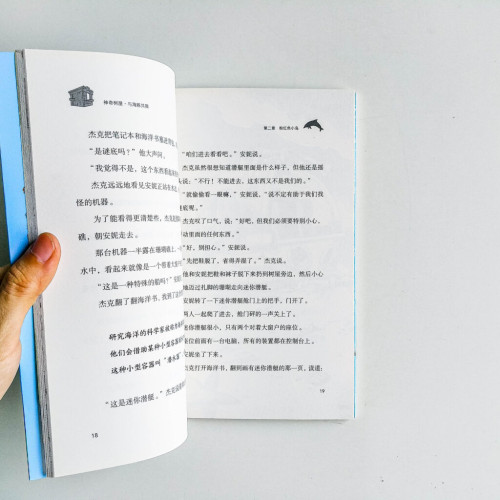 神奇树屋·与海豚共泳
杰克把笔记本和海洋书
“是谜底吗？”他大声问。
“我觉得不是，这个东西看起来
杰克远远地看见安妮正站在
怪的机器。
为了能看得更清楚些，杰克
礁，朝安妮走去。
那台机器一半露在珊瑚礁上，
水中，看起来就像是一个带着大
“这是一种特殊的船吗？”
杰克翻了翻海洋书，找到了
研究海洋的科学家被称为
他们会借助某种小型容器
这种小型容器叫“潜水器”
“这是迷你潜艇。”杰克
18
第二章 粉红色小岛
“咱们进去看看吧。”安妮说。
杰克虽然很想知道潜艇里面是什么样子，但他还是摇
说：“不行！不能进去，这东西又不是我们的。”
“就偷偷看一眼嘛，”安妮说，“说不定有助于我们找
底呢。”
杰克叹了口气，说：“好吧，但我们必须要特别小心，
动里面的任何东西。”
“好，别担心。”安妮说。
“先把鞋脱了，省得弄湿了。”杰克说。
他和安妮把鞋和袜子脱下来扔到树屋旁边，然后小心
地迈过扎脚的珊瑚走向迷你潜艇。
安妮转了一下迷你潜艇舱门上的把手，门开了。
两人一起爬了进去，舱门砰的一声关上了。
迷你潜艇很小，只有两个对着大窗户的座位。
座位前面有一台电脑，所有的装置都在控制台上。
安妮坐了下来。
杰克打开海洋书，翻到画有迷你潜艇的那一页，读道：
19